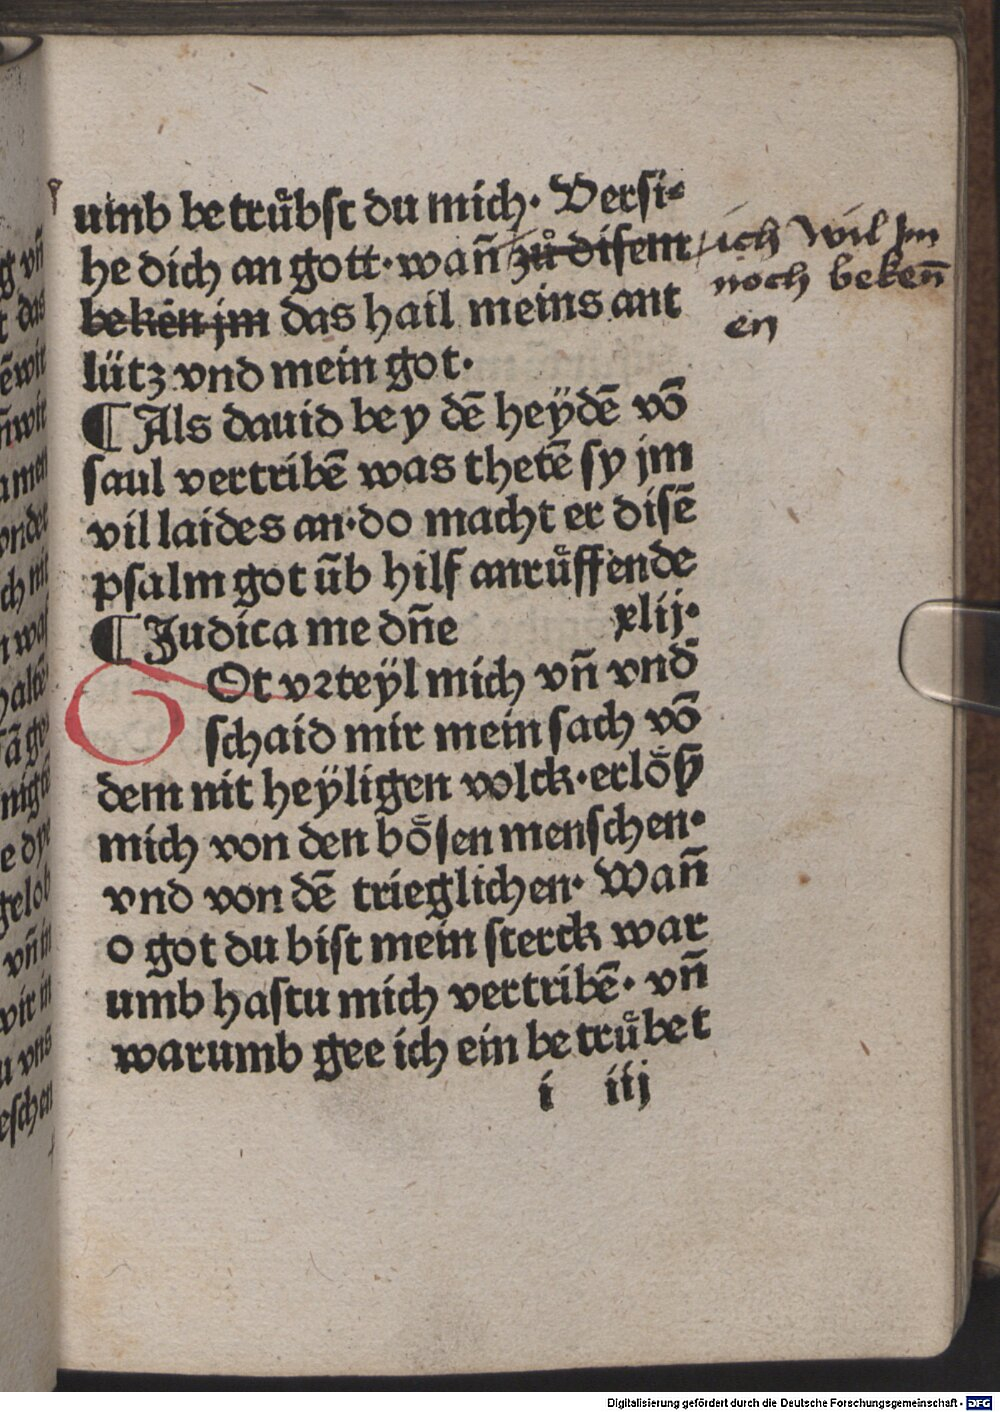 umb betruͤbst du mich. Versi⸗
he dich an gott. wan̄ zuͦ disem
bekēn jm das hail meins ant
lütz vnd mein got.
ich wil Jm
noch beken̄
en
¶ Als dauid bey dē heÿdē vō
saul vertribē was thetē sy jm
vil laides an. do macht er disē
psalm got ūb hilf anruͤffende
¶ Judica me dn̄e xlij.
GOt vꝛteÿl mich vn̄ vnd
schaid mir mein sach vō
dem nit heÿligen volck. erloͤß
mich von den boͤsen menschen.
vnd von dē trieglichen. Wan̄
o got du bist mein sterck war
umb hastu mich vertribē. vn̄
warumb gee ich ein betruͤbet
i iij
Digitalisierung gefördert durch die Deutsche Forschungsgemeinschaft - DFG